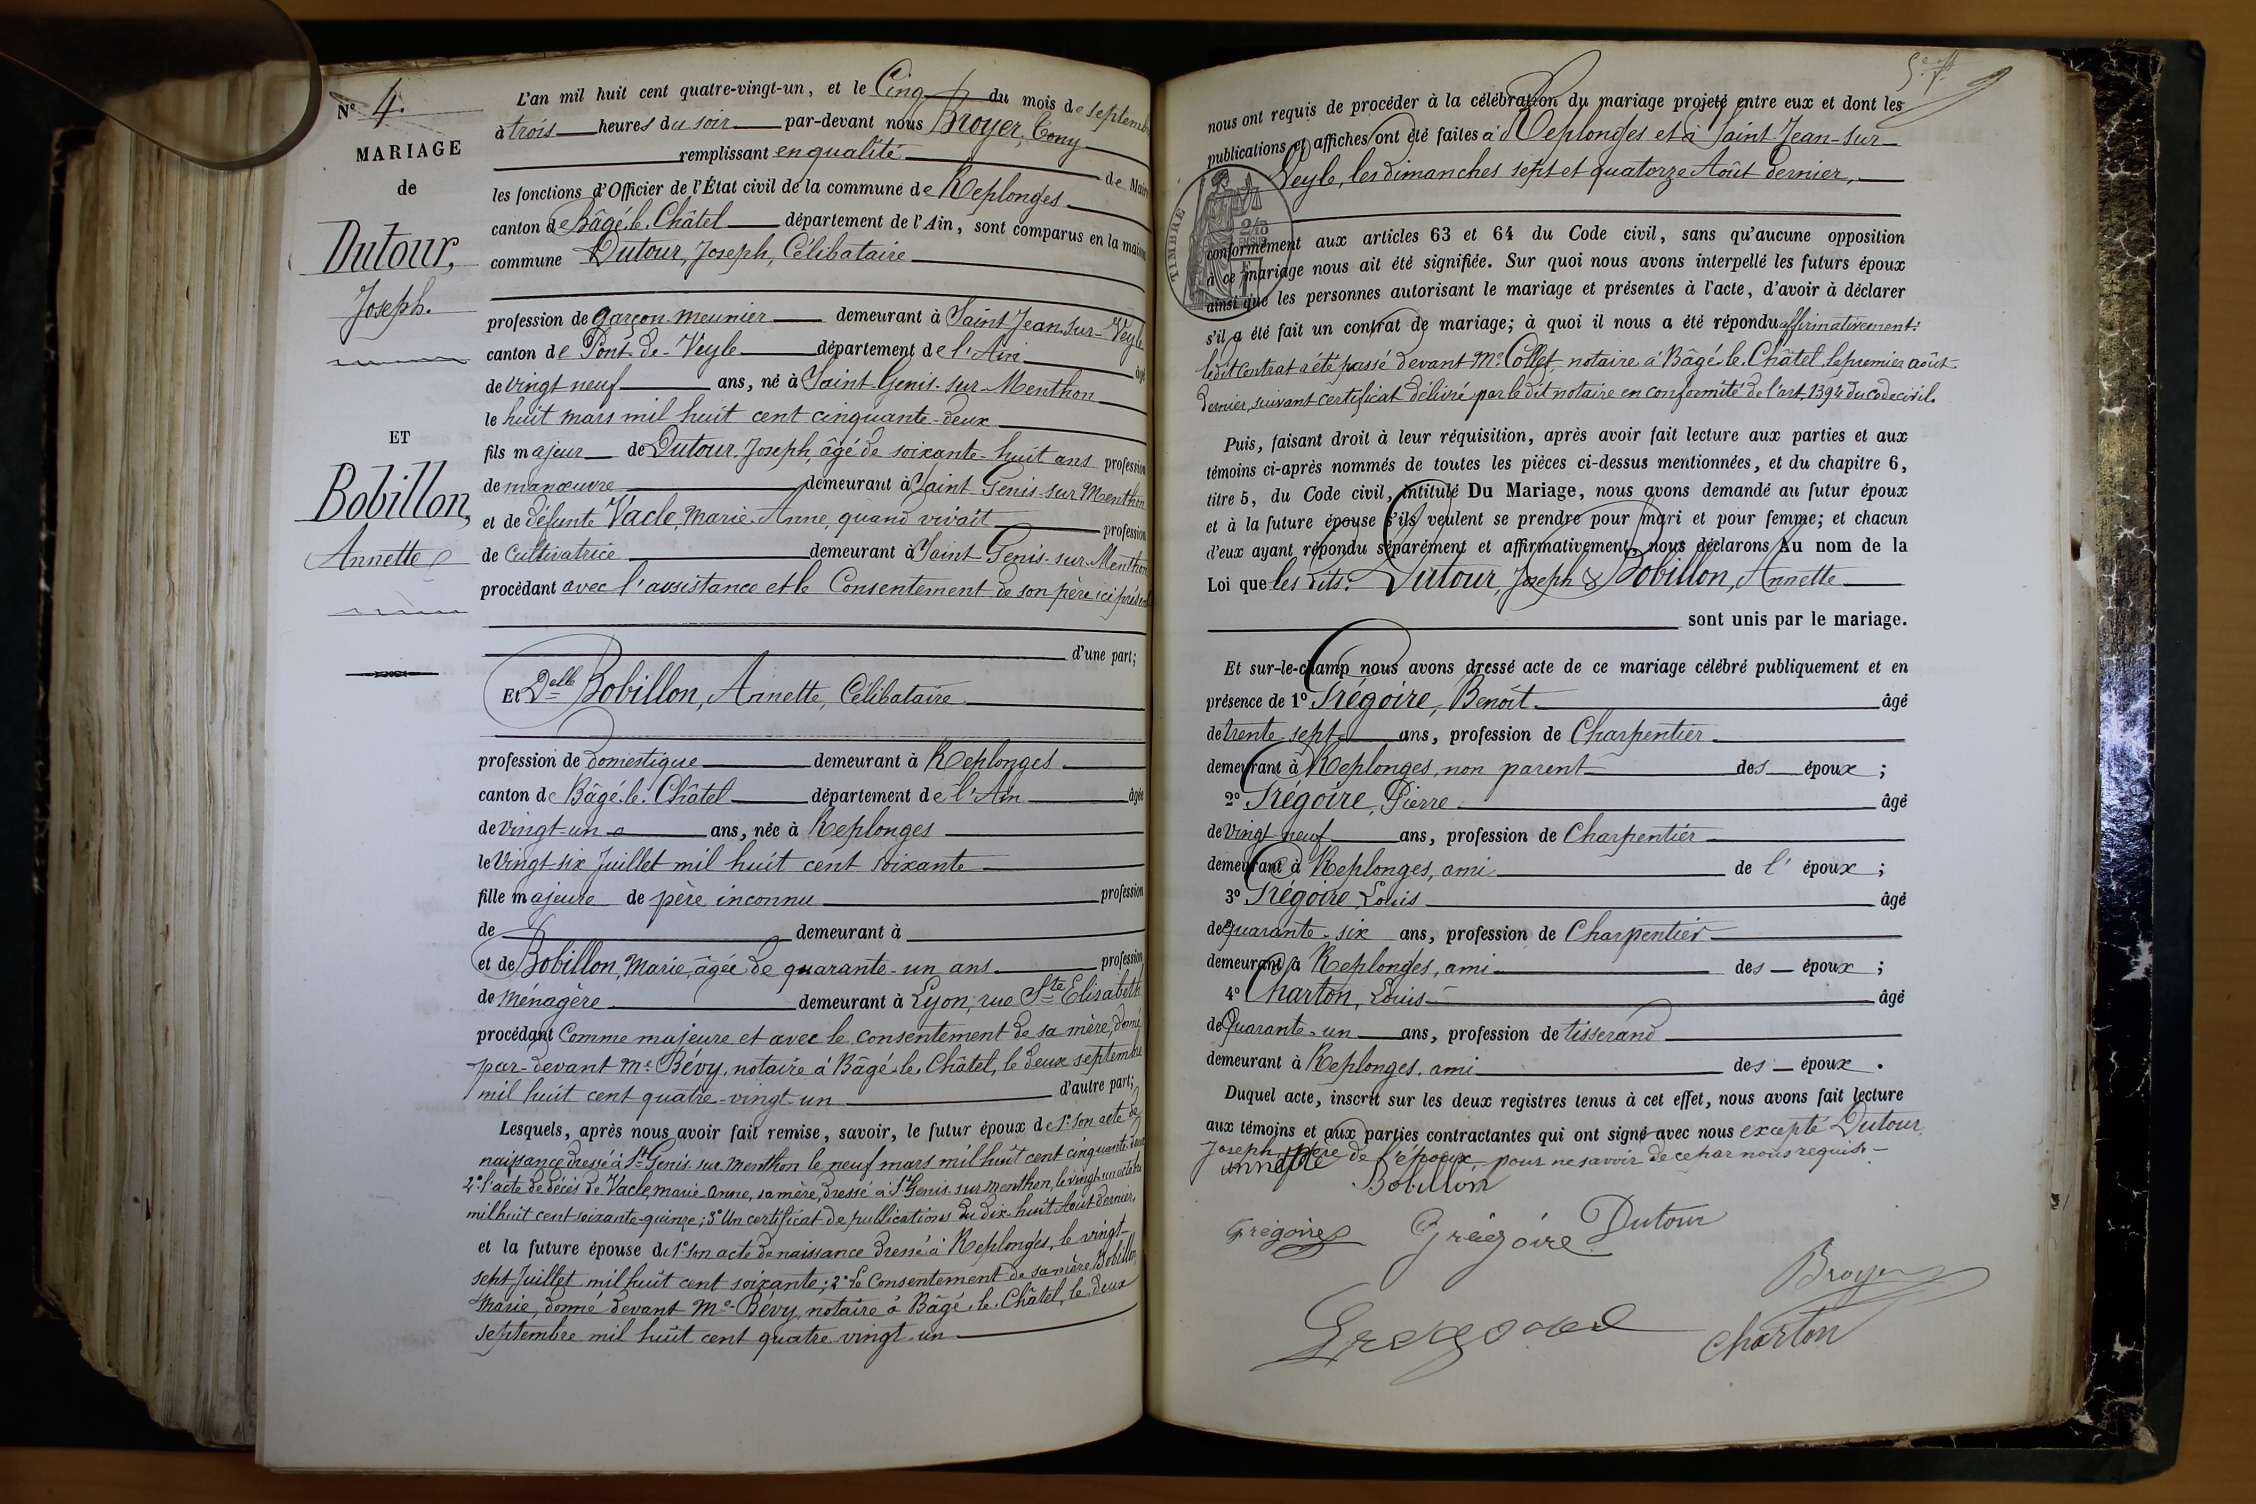 N° 4.
MARIAGE
de
Dutour,
Joseph.
ET
Bobillon,
Annette
L'an mil huit cent quatre-vingt-un, et le Cinq du mois de septembre
à trois heures du soir par-devant nous Broyer, Tony
remplissant en qualité de Maire
les fonctions d'Officier de l'État civil de la commune de Replonges
canton de Bâgé-le-Châtel département de l'Ain, sont comparus en la maison
commune Dutour, Joseph, Célibataire
profession de garçon meunier demeurant à Saint Jean-sur-Veyle
canton de Pont-de-Veyle département de l'Ain âgé
de vingt neuf ans, né à Saint-Genis-sur-Menthon
le huit mars mil huit cent cinquante-deux
fils majeur de Dutour Joseph, âgé de soixante-huit ans profession
de manœuvre demeurant à Saint-Genis-sur Menthon
et de défunte Vacle, Marie-Anne, quand vivait profession
de cultivatrice demeurant à Saint-Genis-sur-Menthon
procédant avec l'assistance et le Consentement de son père ici présent
d'une part;
Et Delle Bobillon, Annette, Célibataire
profession de domestique demeurant à Replonges
canton de Bâgé-le-Châtel département de l'Ain âgée
de vingt-un ans, née à Replonges
le vingt-six Juillet mil huit cent soixante
fille majeure de père inconnu profession
de demeurant à
et de Bobillon, Marie, âgée de quarante-un ans profession
de ménagère demeurant à Lyon, rue Ste Elisabeth
procédant comme majeure et avec le consentement de sa mère, donné
par-devant Me Bévy, notaire à Bâgé-le-Châtel, le deux septembre
mil huit cent quatre-vingt-un d'autre part;
Lesquels, après nous avoir fait remise, savoir, le futur époux de 1° son acte de
naissance dressé à St Genis sur Menthon le neuf mars mil huit cent cinquante-deux
2° l'acte de décès de Vacle, marie anne, sa mère, dressé à St Genis sur menthon, le vingt-un octobre
mil huit cent soixante-quinze; 3° Un certificat de publications du dix-huit Août dernier,
et la future épouse de 1° son acte de naissance dressé à Replonges, le vingt-
sept Juillet mil huit cent soixante; 2° Le Consentement de sa mère Bobillon,
Marie, donné devant Me Bévy, notaire à Bâgé-le-Châtel, le deux
septembre mil huit cent quatre-vingt-un
nous ont requis de procéder à la célébration du mariage projeté entre eux et dont les
publications et affiches ont été faites à Replonges et à Saint-Jean-sur-
Veyle, les dimanches sept et quatorze Août dernier,
TIMBRE
conformément aux articles 63 et 64 du Code civil, sans qu'aucune opposition
à ce mariage nous ait été signifiée. Sur quoi nous avons interpellé les futurs époux
ainsi que les personnes autorisant le mariage et présentes à l'acte, d'avoir à déclarer
s'il a été fait un contrat de mariage; à quoi il nous a été répondu affirmativement:
le dit Contrat a été passé devant Me Collet, notaire à Bâgé-le-Châtel, le premier août
dernier, suivant certificat délivré par le dit notaire en conformité de l'art. 1394 du code civil.
Puis, faisant droit à leur réquisition, après avoir fait lecture aux parties et aux
témoins ci-après nommés de toutes les pièces ci-dessus mentionnées, et du chapitre 6,
titre 5, du Code civil, intitulé Du Mariage, nous avons demandé au futur époux
et à la future épouse s'ils veulent se prendre pour mari et pour femme; et chacun
d'eux ayant répondu séparément et affirmativement, nous déclarons Au nom de la
Loi que les dits: Dutour, Joseph & Bobillon, Annette
sont unis par le mariage.
Et sur-le-champ nous avons dressé acte de ce mariage célébré publiquement et en
présence de 1° Grégoire, Benoît âgé
de trente-sept ans, profession de Charpentier
demeurant à Replonges, non parent des époux ;
2° Grégoire, Pierre âgé
de vingt neuf ans, profession de Charpentier
demeurant à Replonges, ami de l'époux ;
3° Grégoire, Louis âgé
de quarante-six ans, profession de Charpentier
demeurant à Replonges, ami des époux ;
4° Charton, Louis âgé
de Quarante-un ans, profession de tisserand
demeurant à Replonges, ami des époux .
Duquel acte, inscrit sur les deux registres tenus à cet effet, nous avons fait lecture
aux témoins et aux parties contractantes qui ont signé avec nous excepté Dutour
Joseph, père de l'époux, pour ne savoir de ce par nous requis.
annette
Bobillon
Grégoire Grégoire Dutour
Broyer
Gregoire
Charton